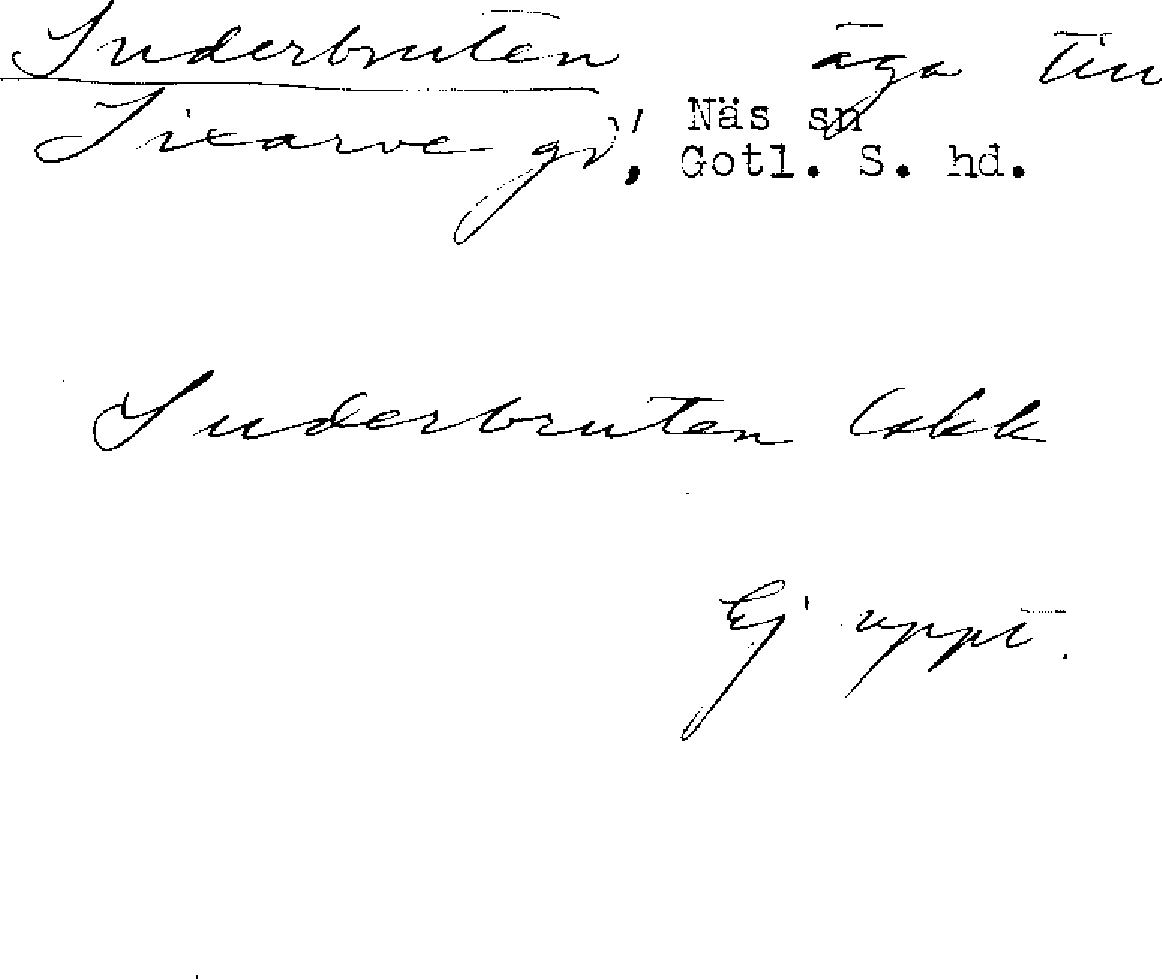 Suderbruten äga till
Sixarve gd, Näs sn
Gotl. S. hd.
Suderbruten Lskk
Ej uppt.